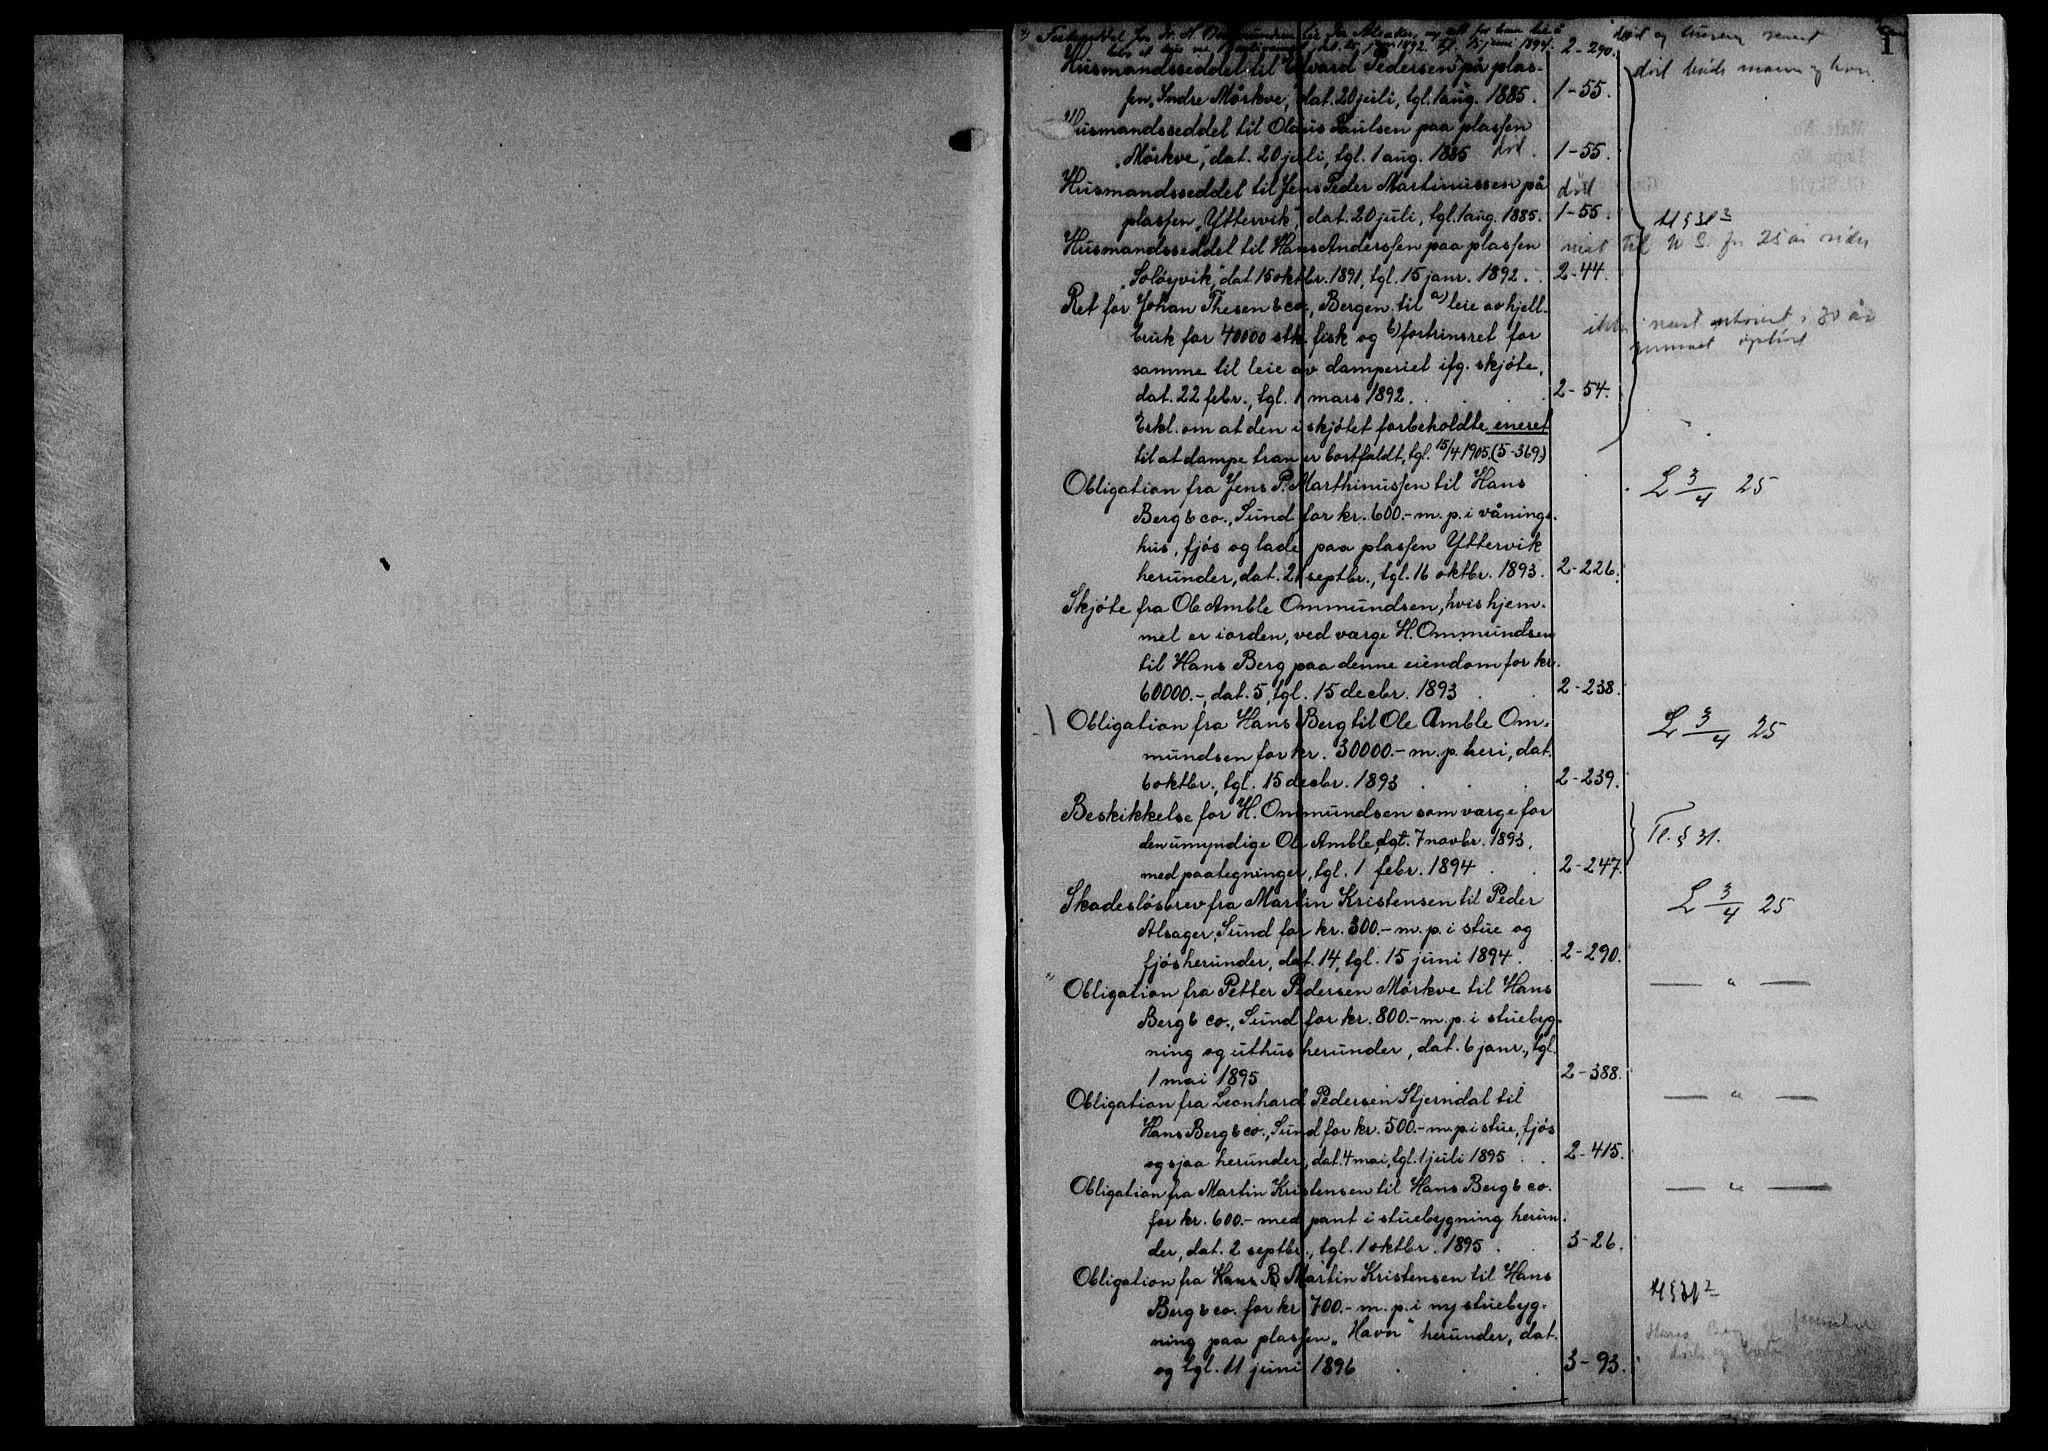 1
død og huset
2-290.
Husmandsseddel til Edvard Pedersen på plas-
død både mann og kon
sen "Søndre Mørkve," dat. 20 juli, tgl. 1 aug. 1885. 1-55.
Husmandsseddel til Olaus Paulsen paa plassen
"Mørkve", dat. 20 juli, tgl. 1 aug. 1885 død. 1-55.
Husmandsseddel til Jens Peder Martinussen på død
plassen "Yttervik", dat. 20 juli, tgl. 1 aug. 1885. 1-55.
Tl § 31 3
Husmandsseddel til Hans Anderssen paa plassen
til for 25 år siden
"Soløyvik," dat 15 oktbr. 1891, tgl. 15 janr. 1892. 2-44.
Ret for Johan Thesen & co., Bergen til a) leie av hjell-
bruk for 40000 stk. fisk og b) fortrinsret for
ikke i 30 år
samme til leie av damperiet ifg. skjøte,
dat. 22 febr., tgl. 1 mars 1892. 2-54.
Erkl. om at den i skjøtet forbeholdte eneret
til at dampe tran er bortfaldt, tgl. 15/4 1905. (5-369.)
Obligation fra Jens P. Marthinussen til Hans L 3/4 25
Berg & co., Sund for kr. 600.- m. p. i vånings-
hus, fjøs og lade paa plassen Yttervik
herunder, dat. 21 septbr., tgl. 16 oktbr. 1893. 2-226.
Skjøte fra Ole Amble Ommundsen, hvis hjem-
mel er i orden, ved værge H. Ommundsen
til Hans Berg paa denne eiendom for kr.
60000.-, dat. 5, tgl. 15 decbr. 1893 2-238.
Obligation fra Hans Berg til Ole Amble Om- L 3/4 25
mundsen for kr. 30000.- m. p. heri, dat.
6 oktbr., tgl. 15 decbr. 1893 2-239.
Beskikkelse for H. Ommundsen som værge for
den umyndige Ole Amble, dat. 7 novbr. 1893, Tl. § 31.
med paategninger, tgl. 1 febr. 1894 2-247.
Skadesløsbrev fra Martin Kristensen til Peder L 3/4 25
Alsager, Sund for kr. 300.- m. p. i stue og
fjøs herunder, dat. 14, tgl. 15 juni 1894. 2-290.
Obligation fra Petter Pedersen Mørkve til Hans — " —
Berg & co., Sund for kr. 800.- m. p. i stuebyg-
ning og uthus herunder, dat. 6 janr., tgl.
1 mai 1895 2-388.
Obligation fra Leonhard Pedersen Stjerndal til — " —
Hans Berg & co., Sund for kr. 500.- m. p. i stue, fjøs
og sjaa herunder, dat. 4 mai, tgl. 1 juli 1895 2-415.
Obligation fra Martin Kristensen til Hans Berg & co. — " —
for kr. 600.- med pant i stuebygning herun-
der, dat. 2 septbr., tgl. 1 oktbr. 1895 3-26.
Obligation fra Hans B Martin Kristensen til Hans Tl § 31 2
Berg & co. for kr 700.- m. p. i ny stuebyg-
ning paa plassen "Havn" herunder, dat. Hans Berg
og tgl. 11 juni 1896 3-93.